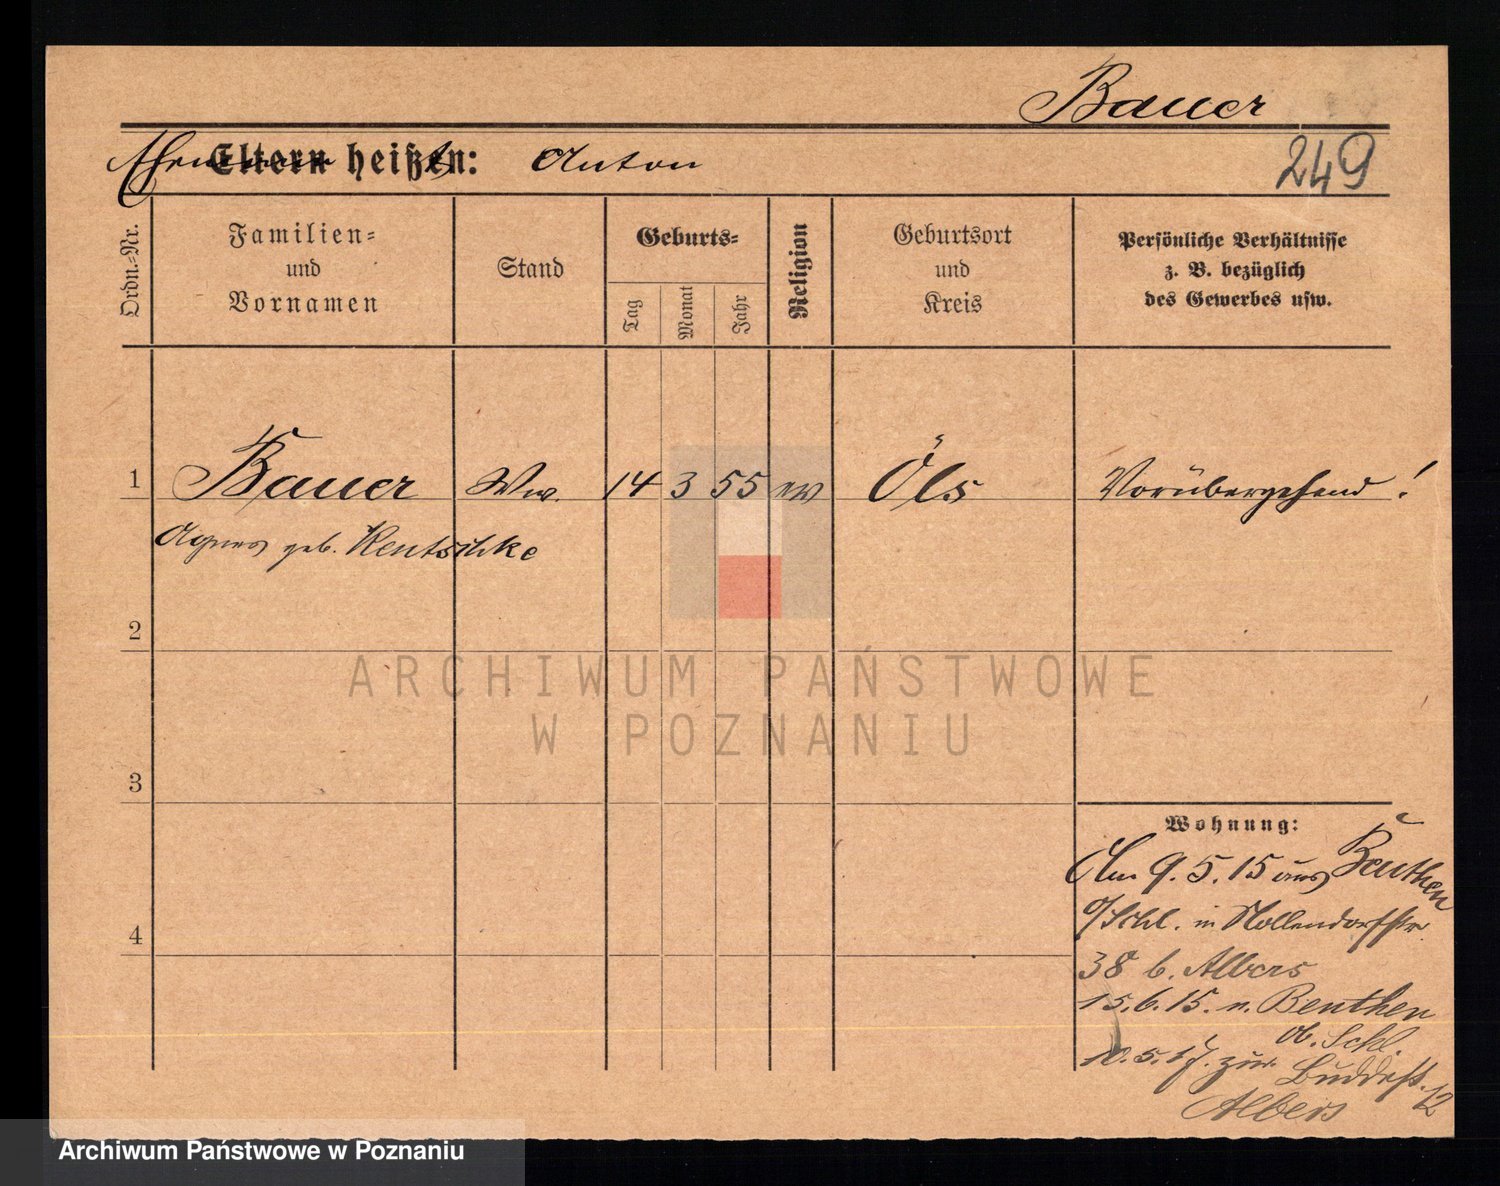 Bauer
Ehemann
Eltern heißen: Anton
249
Ordn.-Nr.
Familien-
und
Vornamen
Stand
Geburts-
Tag
Monat
Jahr
Religion
Geburtsort
und
Kreis
Persönliche Verhältnisse
z. B. bezüglich
des Gewerbes usw.
1 Bauer Ww. 14 3 55 ev Öls Vorübergehend!
Agnes geb. Rentschke
2
3
4
Wohnung:
Am 9.5.15 aus Beuthen
O/Schl. in Nollendorfstr.
38 b. Albers
15.6.15. n. Beuthen
ob. Schl.
10.5.17. zur. Buddestr. 12
Albers
ARCHIWUM PAŃSTWOWE
W POZNANIU
Archiwum Państwowe w Poznaniu